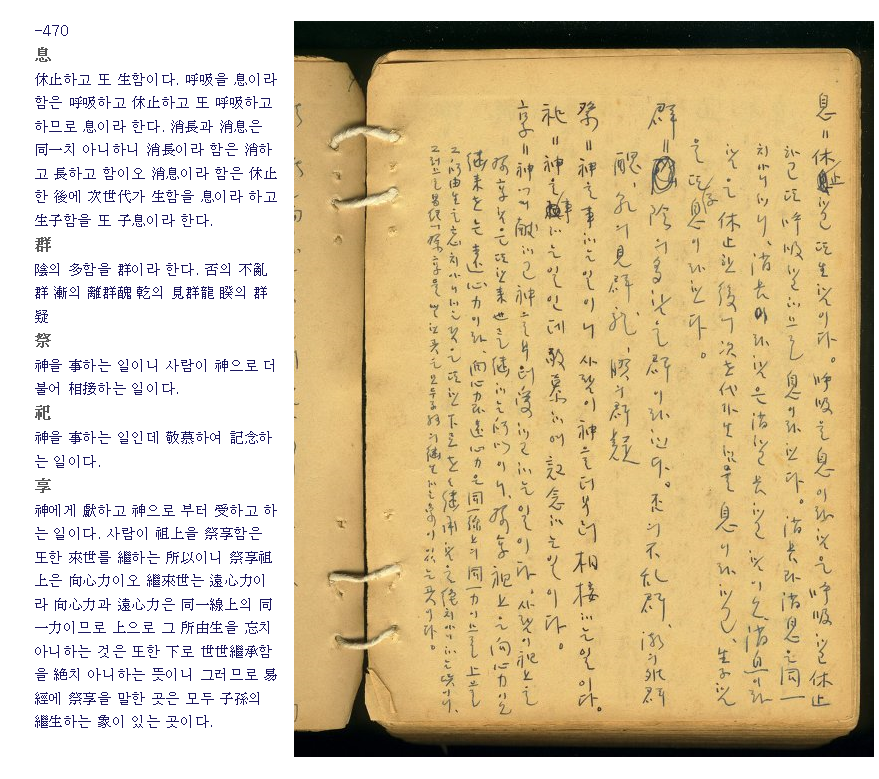 -470
息
休止하고 또 生함이다. 呼吸을 息이라
함은 呼吸하고 休止하고 또 呼吸하고
하므로 息이라 한다. 消長과 消息은
同一치 아니하니 消長이라 함은 消하
고 長하고 함이오 消息이라 함은 休止
한 後에 次世代가 生함을 息이라 하고
生子함을 또 子息이라 한다.
群
陰의 多함을 群이라 한다. 否의 不亂
群 漸의 離群醜 乾의 見群龍 睽의 群
疑
祭
神을 事하는 일이니 사람이 神으로 더
불어 相接하는 일이다.
祀
神을 事하는 일인데 敬慕하여 記念하
는 일이다.
享
神에게 獻하고 神으로 부터 受하고 하
는 일이다. 사람이 祖上을 祭享함은
또한 來世를 繼하는 所以이니 祭享祖
上은 向心力이오 繼來世는 遠心力이
라 向心力과 遠心力은 同一線上의 同
一力이므로 上으로 그 所由生을 忘치
아니하는 것은 또한 下로 世世繼承함
을 絶치 아니하는 뜻이니 그러므로 易
經에 祭享을 말한 곳은 모두 子孫의
繼生하는 象이 있는 곳이다.
息=休止하고 또 生함이다。呼吸을 息이라함은 呼吸하고 休止
하고 또 呼吸하고하므로 息이라한다。消長과 消息은 同一
치아니하니, 消長이라함은 消하고 長하고 함이오, 消息이라
함은 休止한 後에 次世代가 生함을 息이라하고, 生子함
을 또 子息이라한다。
群=陰의 多함을 群이라한다。否의 不乱群, 漸의 離群
醜, 乾의 見群龍, 睽의 群疑
祭=神을 事하는일이니 사람이 神으로더부러 相接하는일이다。
祀=神을 事하는일인데 敬慕하여 記念하는일이다。
享=神에게 献하고 神으로부터 受하고하는일이다. 사람이 祖上을
祭享함은 또한 來世를 継하는 所以이니, 祭享祖上은 向心力이오
継來世는 遠心力이라, 向心力과 遠心力은 同一線上의 同一力이므로 上으로
그 所由生을 忘치아니하는것은 또한 下로 世世継承함을 絶치아니하는 뜻이니,
그러므로 易経에 祭享을 말한곳은 모두 子孫의 継生하는 象이 있는 곳이다。